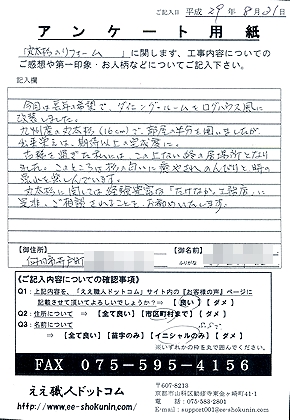 ご記入日 平成 29年 8月21日
アンケート用紙
「丸太梁のリフォーム 」に関します、工事内容についての
ご感想や第一印象・お人柄などについてご記入下さい。
記入欄
今回は長年の希望で、ダイニングルームをログハウス風に
改装しました。
九州産の丸太杉(16cm)で、部屋の半分を囲いましたが
出来栄えは、期待以上の完成度に。
古稀を過ぎた私には、この上ない終の居場所となり
ました。このところは杉の匂いに癒やされのんびりと時の
流れを楽しんでいます。
丸太杉に関しては経験豊富な「たけなか工務店」に
是非、ご相談されることを、お勧めいたします。
《御住所》
《御名前》
ふりがな
《ご記入内容についての確認事項》
Q1:上記内容を、「ええ職人ドットコム」サイト内の【お客様の声】ページに
記載させて頂いてよろしいでしょうか?⇒ 【良い】 【ダメ】
Q2:住所について ⇒ 【全て良い】【市区町村まで】【ダメ】
Q3:名前について
⇒ 【全て良い】【苗字のみ】【イニシャルのみ】【ダメ】
※いずれかの枠を丸で囲んでください。
FAX 075-595-4156
ええ職人ドットコム
http://www.ee-shokunin.com/
〒607-8213
京都市山科区勧修寺東金ヶ崎町61-1
TEL:075-583-2801
E-mail:support001@ee-shokunin.com